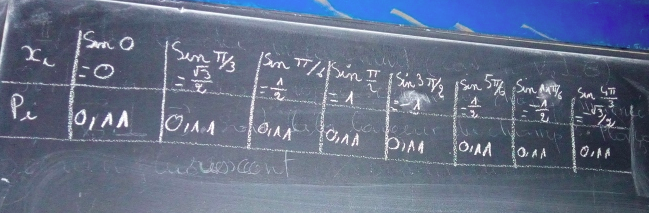 xᵢ | Sin 0 = 0 | Sin π/3 = √3/2 | Sin π/6 = 1/2 | Sin π/2 = 1 | Sin 3π/2 = -1 | Sin 5π/6 = 1/2 | Sin 11π/6 = -1/2 | Sin 4π/3 = -√3/2
Pᵢ | 0,11 | 0,11 | 0,11 | 0,11 | 0,11 | 0,11 | 0,11 | 0,11